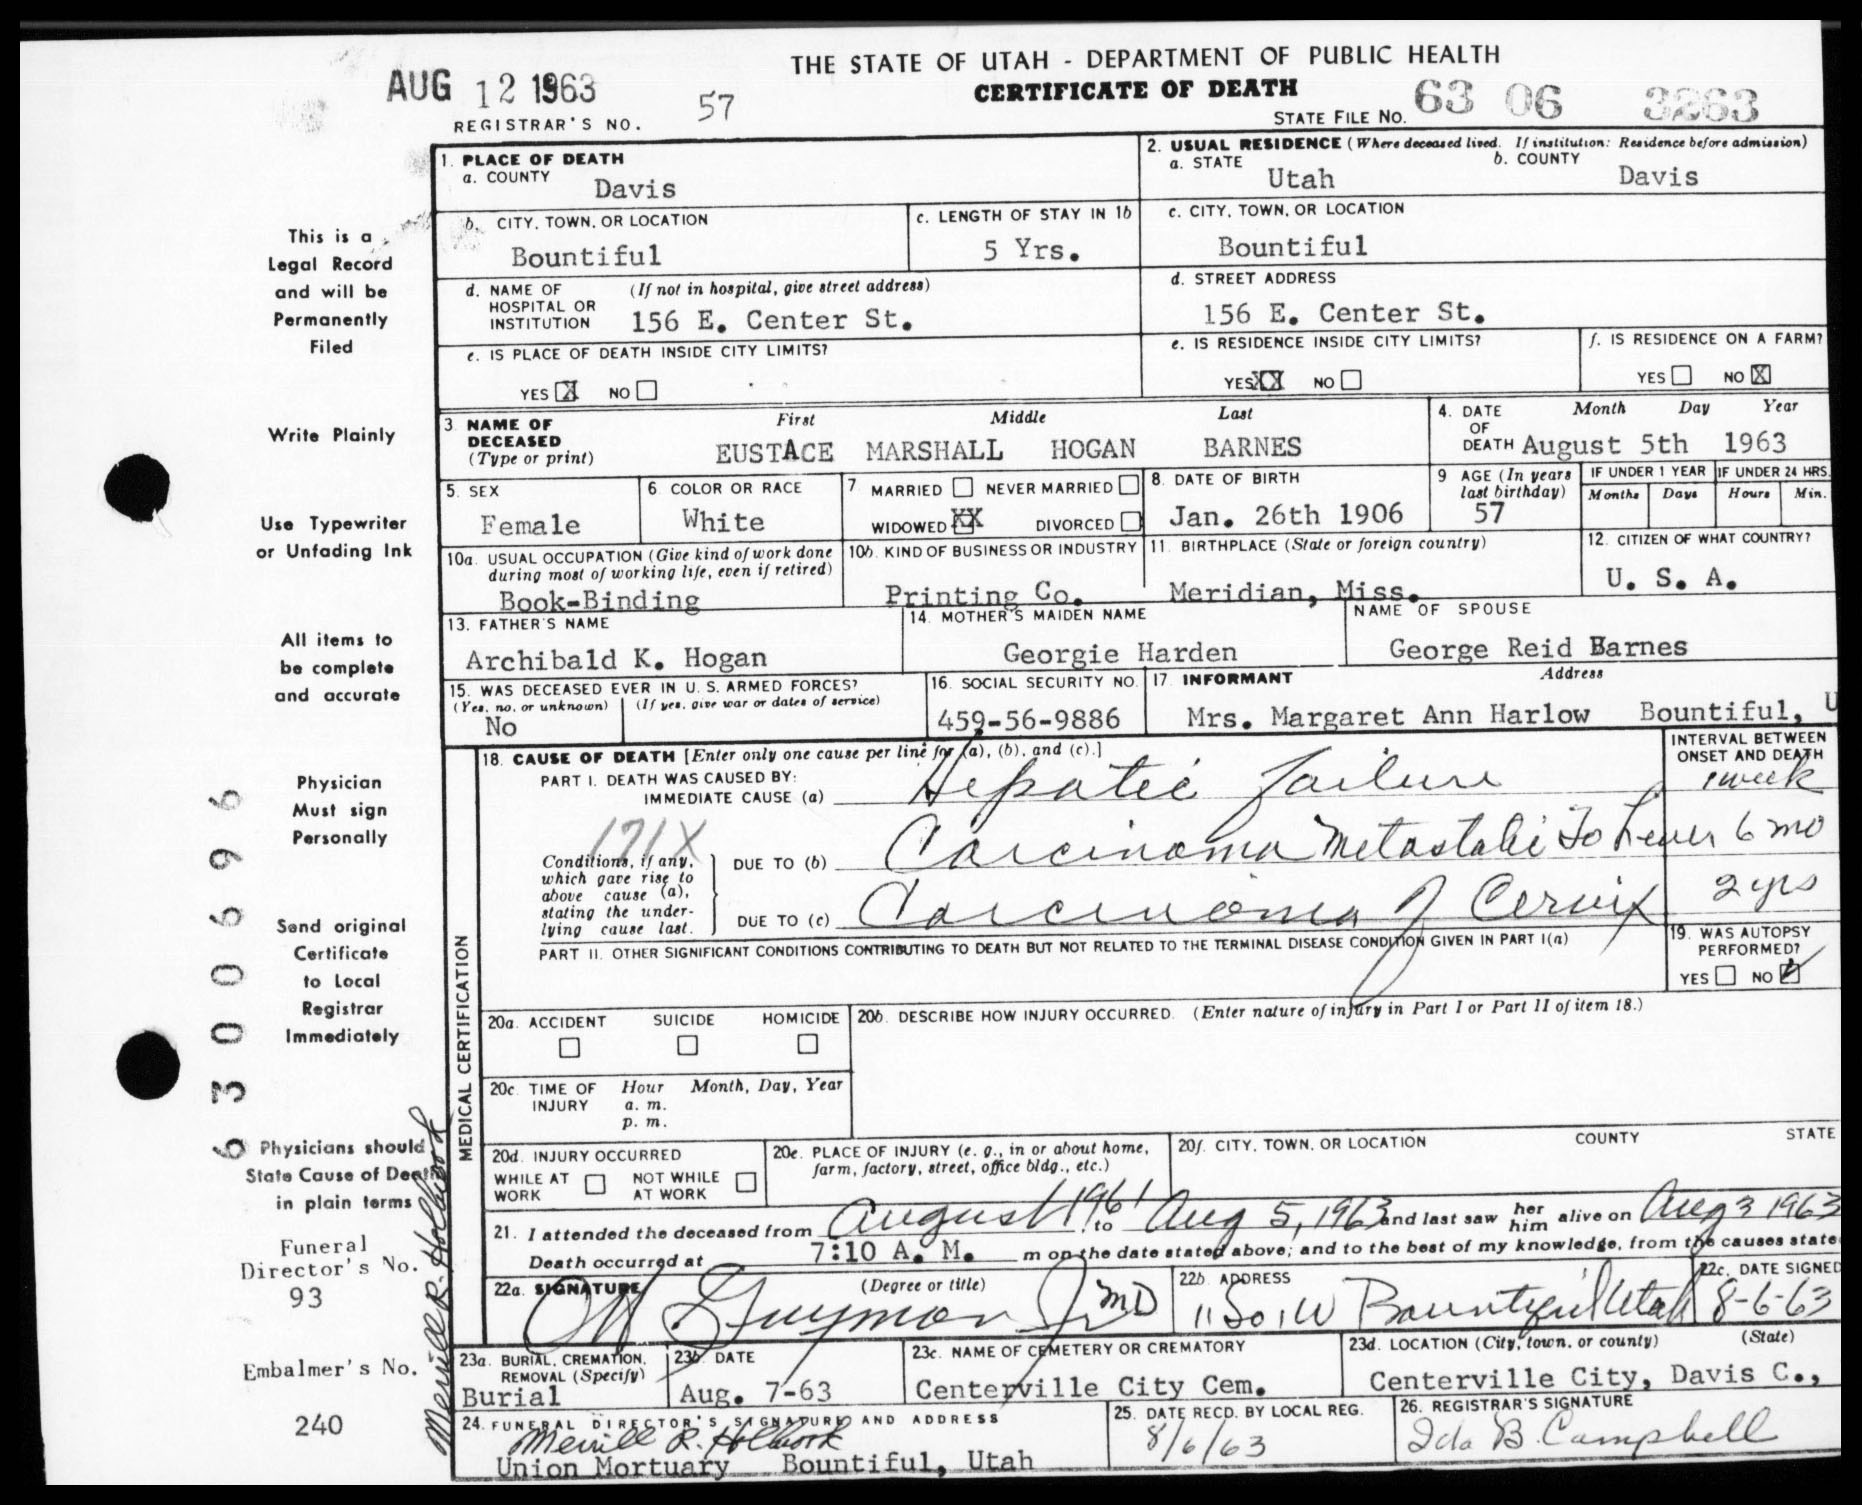 THE STATE OF UTAH - DEPARTMENT OF PUBLIC HEALTH
CERTIFICATE OF DEATH
AUG 12 1963
REGISTRAR'S NO. 57
STATE FILE NO. 63 06 3263
1. PLACE OF DEATH
a. COUNTY Davis
2. USUAL RESIDENCE (Where deceased lived. If institution: Residence before admission)
a. STATE Utah b. COUNTY Davis
b. CITY, TOWN, OR LOCATION Bountiful
c. LENGTH OF STAY IN 1b 5 Yrs.
c. CITY, TOWN, OR LOCATION Bountiful
d. NAME OF HOSPITAL OR INSTITUTION (If not in hospital, give street address) 156 E. Center St.
d. STREET ADDRESS 156 E. Center St.
e. IS PLACE OF DEATH INSIDE CITY LIMITS?
YES X NO
e. IS RESIDENCE INSIDE CITY LIMITS?
YES XX NO
f. IS RESIDENCE ON A FARM?
YES NO X
3. NAME OF DECEASED (Type or print)
First Middle Last
EUSTACE MARSHALL HOGAN BARNES
4. DATE OF DEATH Month Day Year
August 5th 1963
5. SEX Female
6. COLOR OR RACE White
7. MARRIED NEVER MARRIED
WIDOWED XX DIVORCED
8. DATE OF BIRTH Jan. 26th 1906
9 AGE (In years last birthday) 57
IF UNDER 1 YEAR Months Days
IF UNDER 24 HRS. Hours Min.
10a. USUAL OCCUPATION (Give kind of work done during most of working life, even if retired)
Book-Binding
10b. KIND OF BUSINESS OR INDUSTRY
Printing Co.
11. BIRTHPLACE (State or foreign country)
Meridian, Miss.
12. CITIZEN OF WHAT COUNTRY?
U. S. A.
13. FATHER'S NAME
Archibald K. Hogan
14. MOTHER'S MAIDEN NAME
Georgie Harden
NAME OF SPOUSE
George Reid Barnes
15. WAS DECEASED EVER IN U. S. ARMED FORCES?
(Yes, no, or unknown) (If yes, give war or dates of service)
No
16. SOCIAL SECURITY NO.
459-56-9886
17. INFORMANT Address
Mrs. Margaret Ann Harlow Bountiful, U
MEDICAL CERTIFICATION
18. CAUSE OF DEATH [Enter only one cause per line for (a), (b), and (c).]
INTERVAL BETWEEN ONSET AND DEATH
PART I. DEATH WAS CAUSED BY:
IMMEDIATE CAUSE (a) Hepatic Failure 1 week
171X
Conditions, if any, which gave rise to above cause (a), stating the underlying cause last.
DUE TO (b) Carcinoma Metastatic To Liver 6 mo
DUE TO (c) Carcinoma of Cervix 2 yrs
PART II. OTHER SIGNIFICANT CONDITIONS CONTRIBUTING TO DEATH BUT NOT RELATED TO THE TERMINAL DISEASE CONDITION GIVEN IN PART I(a)
19. WAS AUTOPSY PERFORMED?
YES NO
20a. ACCIDENT SUICIDE HOMICIDE
20b. DESCRIBE HOW INJURY OCCURRED. (Enter nature of injury in Part I or Part II of item 18.)
20c. TIME OF INJURY Hour Month, Day, Year
a. m.
p. m.
20d. INJURY OCCURRED
WHILE AT WORK NOT WHILE AT WORK
20e. PLACE OF INJURY (e. g., in or about home, farm, factory, street, office bldg., etc.)
20f. CITY, TOWN, OR LOCATION COUNTY STATE
21. I attended the deceased from August 1961 to Aug 5, 1963 and last saw her him alive on Aug 3 1963
Death occurred at 7:10 A. M. m on the date stated above; and to the best of my knowledge, from the causes state
22a. SIGNATURE (Degree or title)
Guymon Jr MD
22b. ADDRESS
11 So 1 W Bountiful Utah
22c. DATE SIGNED
8-6-63
23a. BURIAL, CREMATION, REMOVAL (Specify)
Burial
23b. DATE
Aug. 7-63
23c. NAME OF CEMETERY OR CREMATORY
Centerville City Cem.
23d. LOCATION (City, town, or county) (State)
Centerville City, Davis C.,
24. FUNERAL DIRECTOR'S SIGNATURE AND ADDRESS
Merrill R. Holbrook
Union Mortuary Bountiful, Utah
25. DATE RECD. BY LOCAL REG.
8/6/63
26. REGISTRAR'S SIGNATURE
Ida B. Campbell
This is a
Legal Record
and will be
Permanently
Filed
Write Plainly
Use Typewriter
or Unfading Ink
All items to
be complete
and accurate
Physician
Must sign
Personally
Send original
Certificate
to Local
Registrar
Immediately
Physicians should
State Cause of Death
in plain terms
Funeral
Director's No.
93
Embalmer's No.
240
6300696
Merrill R. Holbrook